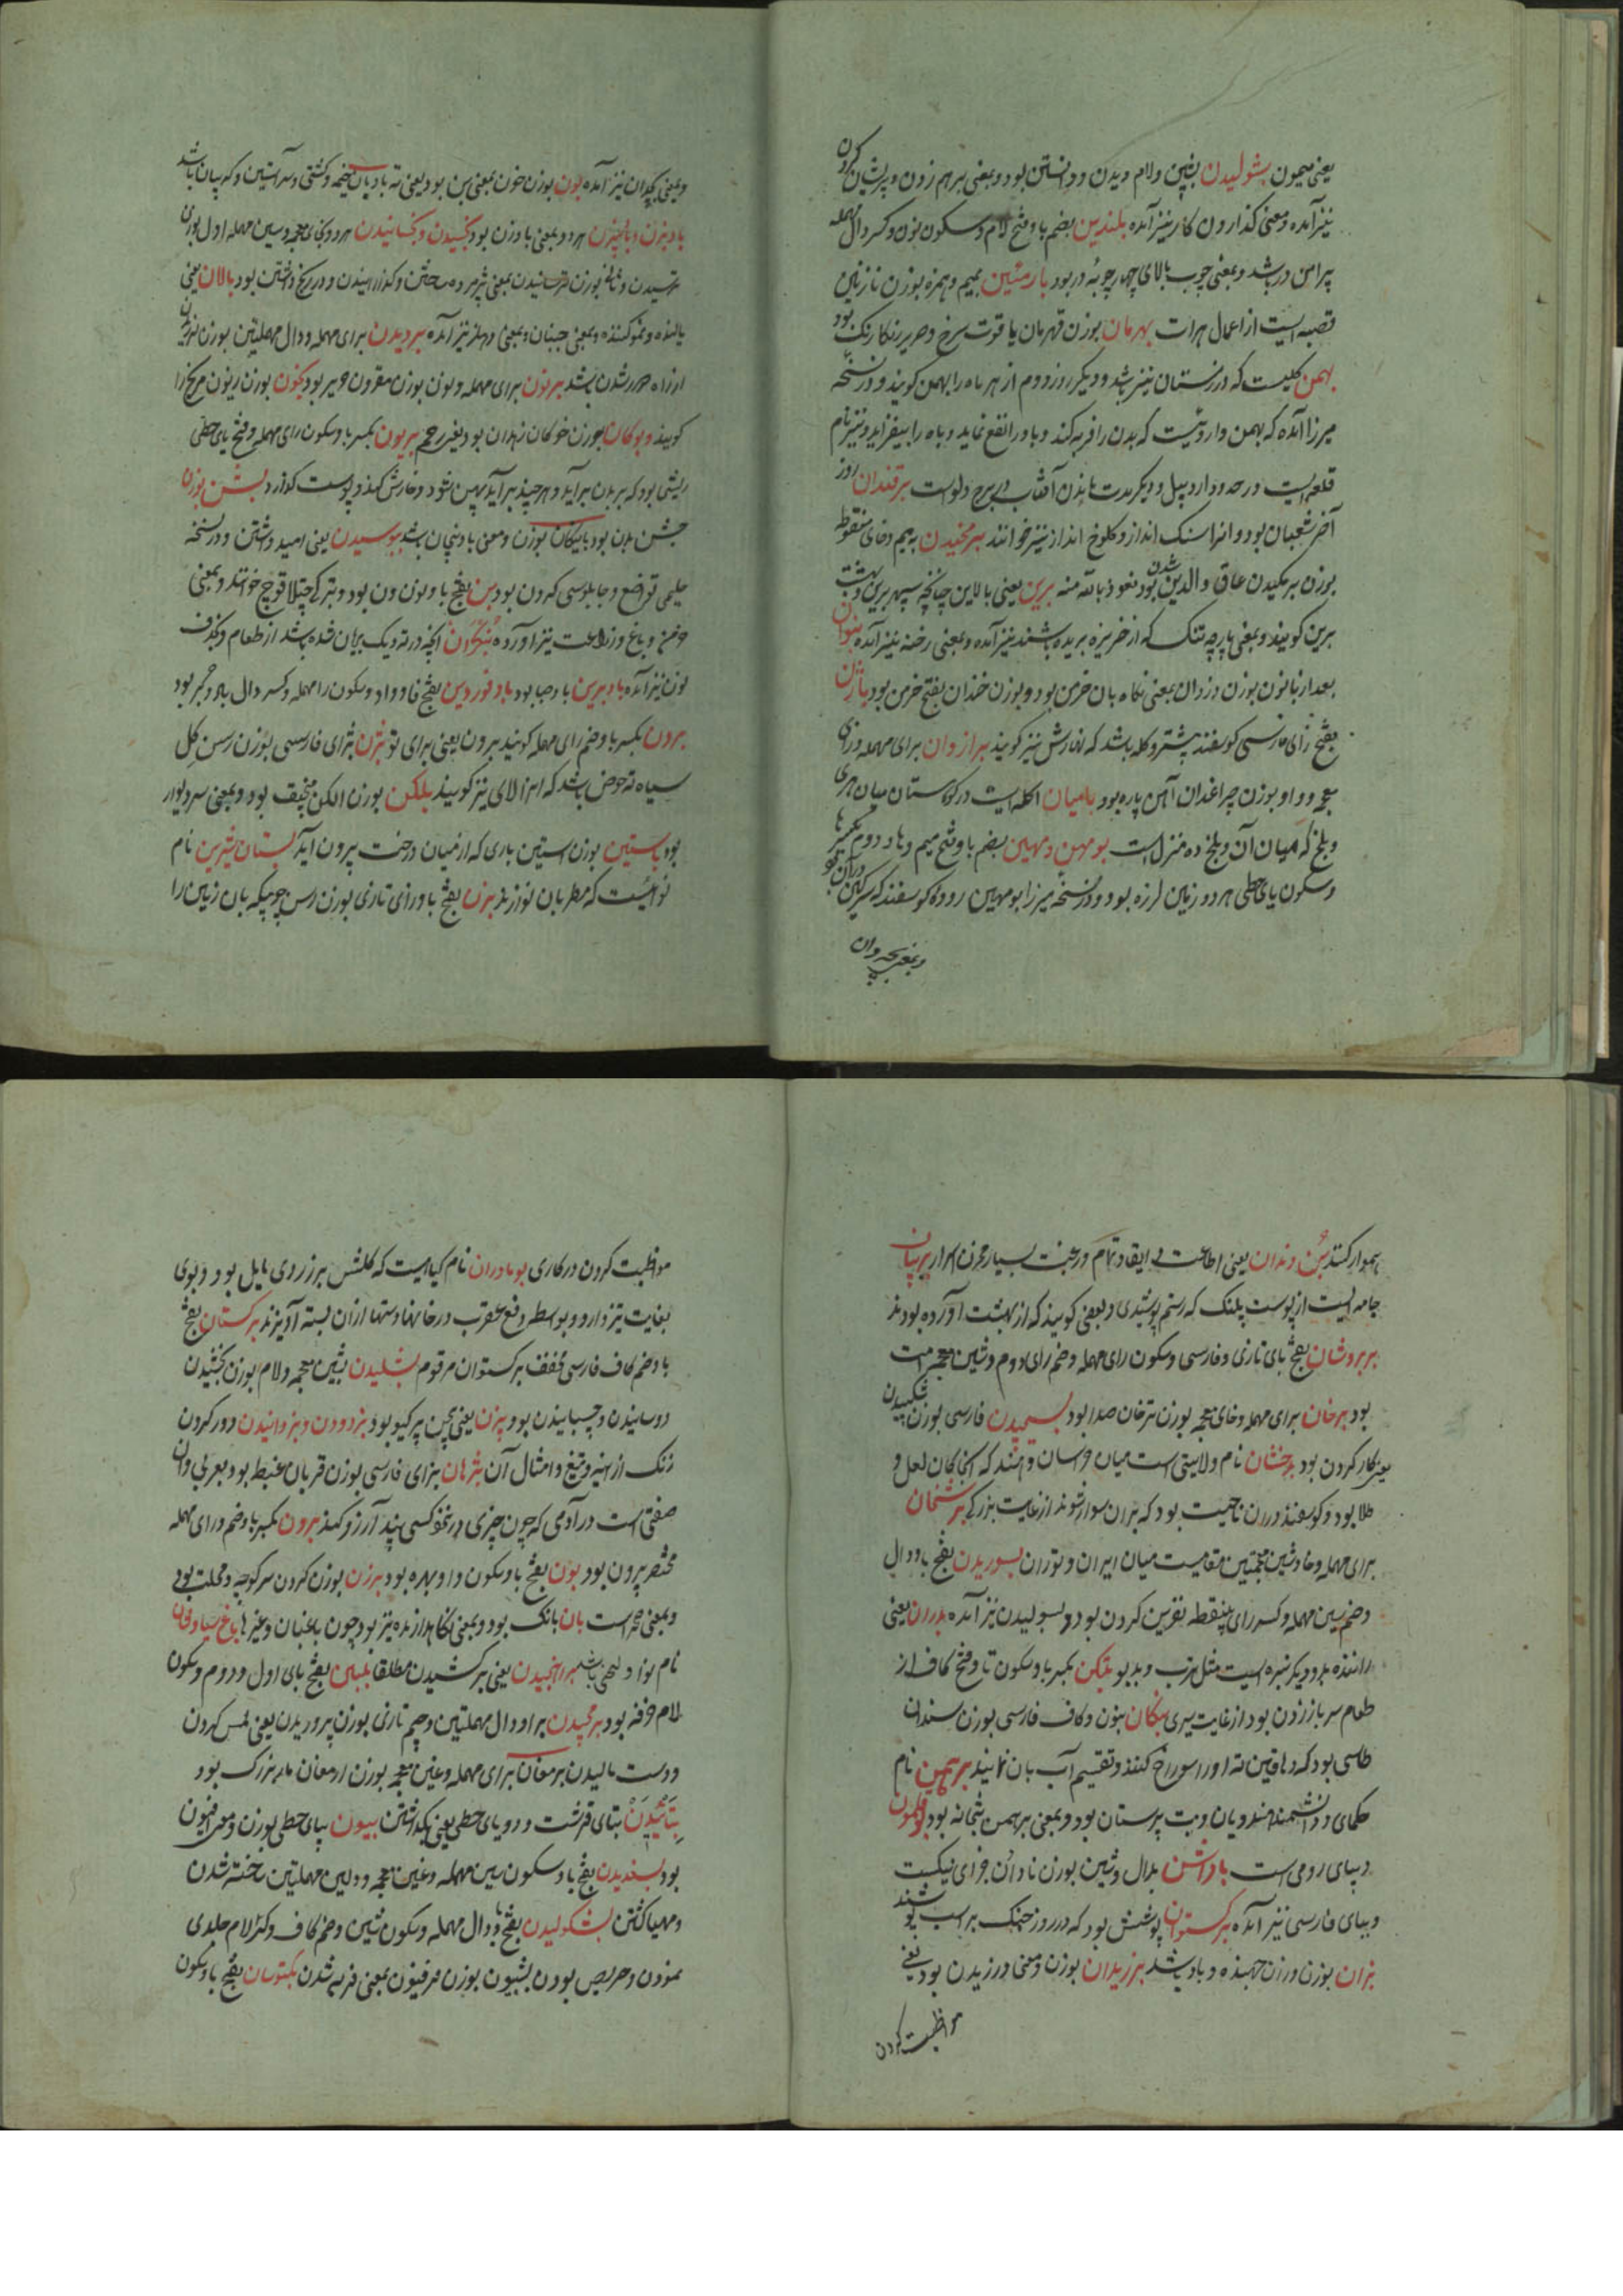 یعنی میمون بشولیدن بشین ولام دیدن ودانستن بود وبمعنی برهم زدن و پریشان کردن
نیز آمده ومعنی کذاردن کار نیز آمده بلندین بضم با وفتح لام وسکون نون وکسر دال مهمله
پیرامن در باشد وبمعنی چوب بالای چهارچوبهٔ در بود بارمئین بمیم وهمزه بوزن نازنین
قصبه ایست از اعمال هرات بهرمان بوزن قهرمان یاقوت سرخ وحریر رنکارنک بود
بهمن کلیست که در زمستان نیز باشد ودیکر روز دوم از هر ماه را بهمن کویند ودر نسخه
میرزا آمده که بهمن داروئیست که بدن را فربه کند وباد را نفع نماید وباه را بیفزاید ونیز نام
قلعه ایست در حدود اردبیل ودیکر مدت ماندن آفتاب در برج دلو است برقندان روز
آخر شعبان بود وانرا سنک انداز وکلوخ انداز نیز خوانند برمخیدن بمیم وخای منقوطه
بوزن برمکیدن عاق والدین شدن بود نعوذ بالله منه برین یعنی بالاین چنانچه سپهر برین وبهشت
برین کویند وبمعنی پارچه تنک که از خربزه بریده باشند نیز آمده وبمعنی رخنه نیز آمده بنوان
بعد از با نون بوزن دزدان بمعنی نکاه بان خرمن بود وبوزن خندان بفتح خرمن بود باژن
بفتح زای فارسی کوسفند پیشتر وکله باشد که نهازش نیز کویند برازوان برای مهمله وزای
معجمه وواو بوزن چراغدان آهن پاره بود بامیان الکه ایست در کوهستان میان هری
وبلخ که میان آن وبلخ ده منزل است بومهن ومهین بضم با وفتح میم وها ودوم بکسر ها
وسکون یای حطی هردو زمین لرزه بود ودر نسخه میرزا بومهین روده کوسفند که سرکین در آن بود
وبمعنی بچه دان
وبمعنی بچه دان نیز آمده بون بوزن خون بمعنی بن بود یعنی ته بادبان خیمه وکشتی وسر آستین وکریبان باشد
بادبزن وبابیزن هردو بمعنی بادزن بود بخسیدن وبخسانیدن هردو بخای معجمه وسین مهمله اول بوزن
ترسیدن وثانی بوزن ترسانیدن بمعنی پژمرده ساختن وکدازانیدن ودر رنج داشتن بود بالان یعنی
بالنده ونمو کننده وبمعنی جنبان وبمعنی دهلیز نیز آمده بردیدن برای مهمله ودال مهملتین بوزن لرزیدن
از راه دور شدن باشد برنون برای مهمله ونون بوزن مقرون حریر بود بکنون بوزن زیتون مریخ را
کویند وبوکان بوزن خوکان زهدان بود یعنی رحم بریون بکسر با وسکون رای مهمله وفتح یای حطی
ریشی بود که بر بدن برآید وهر چند برآید پهن شود وخارش کند وپوست کذارد بشن بوزن
جشن بدن بود بابنکان بوزن ومعنی بادنجان باشد ببوسیدن یعنی امید داشتن ودر نسخه
حلیمی تواضع وچاپلوسی کردن بود بن بفتح با ونون ون بود وبترکی چتلاقوج خوانند وبمعنی
خرمن وباغ وزراعت نیز آورده بنکران آنچه در ته دیک بریان شده باشد از طعام وبحذف
نون نیز آمده بادبرین باد صبا بود باد فوردین بفتح فا وواو وسکون را مهمله وکسر دال باد دبور بود
برون بکسر با وضم رای مهمله کویند برون یعنی برای تو بژن بژای فارسی بوزن رسن کل
سیاه ته حوض باشد که انرا لای نیز کویند بلکن بوزن الکن منجنیق بود وبمعنی سر دیوار
بود باستین بوزن استین باری که از میان درخت بیرون آید بستان شیرین نام
نوائیست که مطربان نوازند بزن بفتح با وزای تازی بوزن رسن چوبیکه بان زمین را
هموار کنند بن دندان یعنی اطاعت وانقیاد تمام ورغبت بسیار مخزن اسرار ببر بیان
جامه ایست از پوست پلنک که رستم پوشیدی وبعضی کویند که از بهشت آورده بودند
بربروشان بفتح بای تازی وفارسی وسکون رای مهمله وضم رای دوم وشین معجمه امت
بود برخان برای مهمله وخای معجمه بوزن ترخان صدا بود بسیجیدن فارسی بوزن شکیبیدن
یعنی کار کردن بود بدخشان نام ولایتی است میان خراسان وهند که انجا کان لعل و
طلا بود وکوسفند دران ناحیت بود که بران سوار شوند از غایت بزرکی برشخان
برای مهمله وخا وشین معجمتین مقامیست میان ایران وتوران بسوریدن بفتح با ودال
وضم سین مهمله وکسر رای بینقطه نفرین کردن بود وبسولیدن نیز آمده بدران یعنی
راننده بد ودیکر تیره ایست مثل ترب وبدبو بتکن بکسر با وسکون تا وفتح کاف از
طعام سر باز زدن بود از غایت سیری بنکان بنون وکاف فارسی بوزن سندان
طاسی بود که دهاقین ته اورا سوراخ کنند وتقسیم آب بان نمایند برهمن نام
حکمای ودانشمند هندویان وبت پرستان بود وبمعنی برهمن بتخانه بود بوقلمون
دیبای رومی است باداشن بدال وشین بوزن نادان جزای نیکیست
وببای فارسی نیز آمده برکستوان پوشش بود که در روز جنک بر اسب پوشند
بزان بوزن وزان جهنده وباد باشد برزیدان بوزن ومعنی ورزیدن بود یعنی
مواظبت کردن
مواظبت کردن در کاری بومادران نام کیاهیست که کلشن برزردی مایل بود وبوی
بغایت تیز دارد وبواسطه دفع عقرب در خانها دستها از ان بسته آویزند برکستان بفتح
با وضم کاف فارسی مخفف برکستوان مرقوم بشلیدن بشین معجمه ولام بوزن بخشیدن
دوسانیدن وچسبانیدن بود بیزن یعنی بچین پرکیو بود بزدودن وبزدانیدن دور کردن
زنک از آینه وتیغ وامثال آن بژهان بزای فارسی بوزن قربان غبطه بود بعربی وان
صفتی است در آدمی که چون چیزی در تحفو کسی بیند آرزو کند برون بکسر با وضم ورای مهمله
مختصر بیرون بود بون بفتح با وسکون واو بهره بود برزن بوزن کردن سر کوچه ومحلت بود
وبمعنی صحراست بان بانک بود وبمعنی نکاهدارنده نیز بود چون باغبان وغیرها باغ سیاوشان
نام نوا ولحنی باشد برانجیدن یعنی برکشیدن مطلقا بلبن بفتح بای اول ودوم وسکون
لام خرفه بود برمجیدن برا ودال مهملتین وجیم تازی بوزن پروریدن یعنی لمس کردن
ودست مالیدن برمغان برای مهمله وغین معجمه بوزن ارمغان مار بزرک بود
بتائیدن بتای قرشت ودو یای حطی یعنی بکذاشتن بیون بیای حطی بوزن ومعنی افیون
بود بسغدیدن بفتح با وسکون سین مهمله وغین معجمه ودالین مهملتین ساخته شدن
ومهیا کشتن بشکولیدن بفتح با ودال مهمله وسکون شین وضم کاف وکسر لام جلدی
نمودن وحریص بودن بشیون بوزن فرفیون بمعنی فربه شدن بکتوسان بفتح با وسکون